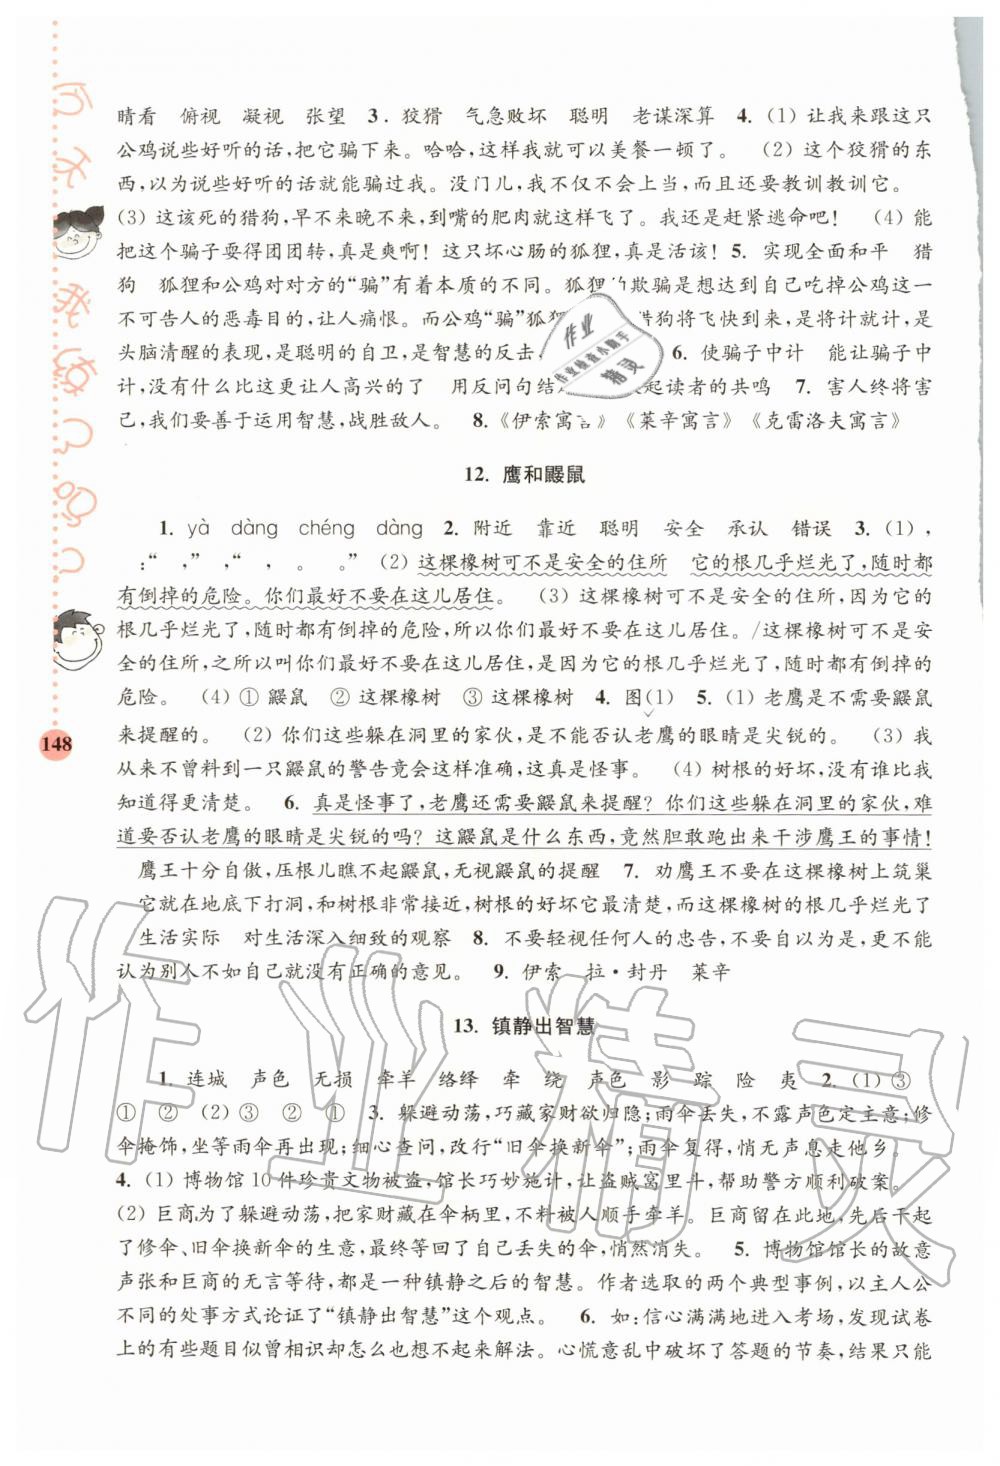 晴看 俯视 凝视 张望 3. 狡猾 气急败坏 聪明 老谋深算 4. (1) 让我来跟这只
公鸡说些好听的话,把它骗下来。哈哈,这样我就可以美餐一顿了。 (2) 这个狡猾的东
西,以为说些好听的话就能骗过我。没门儿,我不仅不会上当,而且还要教训教训它。
(3) 这该死的猎狗,早不来晚不来,到嘴的肥肉就这样飞了。我还是赶紧逃命吧! (4) 能
把这个骗子耍得团团转,真是爽啊!这只坏心肠的狐狸,真是活该! 5. 实现全面和平 猎
狗 狐狸和公鸡对对方的“骗”有着本质的不同。狐狸的欺骗是为了达到吃掉公鸡这一
不可告人的恶毒目的,让人痛恨。而公鸡“骗”狐狸 猎狗将飞快到来,是将计就计,是
头脑清醒的表现,是聪明的自卫,是智慧的反击, 6. 使骗子中计 能让骗子中
计,没有什么比这更让人高兴的了 用反问句结 起读者的共鸣 7. 害人终将害
己,我们要善于运用智慧,战胜敌人。 8.《伊索寓言》《莱辛寓言》《克雷洛夫寓言》
12. 鹰和鼹鼠
1. yà dàng chéng dàng 2. 附近 靠近 聪明 安全 承认 错误 3. (1) ,
:“ ,”“ , 。 。” (2) 这棵橡树可不是安全的住所 它的根几乎烂光了,随时都
有倒掉的危险。你们最好不要在这儿居住。 (3) 这棵橡树可不是安全的住所,因为它的
根几乎烂光了,随时都有倒掉的危险,所以你们最好不要在这儿居住。/这棵橡树可不是安
全的住所,之所以叫你们最好不要在这儿居住,是因为它的根几乎烂光了,随时都有倒掉的
危险。 (4) ① 鼹鼠 ② 这棵橡树 ③ 这棵橡树 4. 图(1) 5. (1) 老鹰是不需要鼹鼠
来提醒的。 (2) 你们这些躲在洞里的家伙,是不能否认老鹰的眼睛是尖锐的。 (3) 我
从来不曾料到一只鼹鼠的警告竟会这样准确,这真是怪事。 (4) 树根的好坏,没有谁比我
知道得更清楚。 6. 真是怪事了,老鹰还需要鼹鼠来提醒?你们这些躲在洞里的家伙,难
道要否认老鹰的眼睛是尖锐的吗?这鼹鼠是什么东西,竟然胆敢跑出来干涉鹰王的事情!
鹰王十分自傲,压根儿瞧不起鼹鼠,无视鼹鼠的提醒 7. 劝鹰王不要在这棵橡树上筑巢
它就在地底下打洞,和树根非常接近,树根的好坏它最清楚,而这棵橡树的根几乎烂光了
生活实际 对生活深入细致的观察 8. 不要轻视任何人的忠告,不要自以为是,更不能
认为别人不如自己就没有正确的意见。 9. 伊索 拉·封丹 莱辛
148
13. 镇静出智慧
1. 连城 声色 无损 牵羊 络绎 牵 绕 声色 影 踪 险 夷 2. (1) ③
① ② (2) ③ ② ① 3. 躲避动荡,巧藏家财欲归隐;雨伞丢失,不露声色定主意;修
伞掩饰,坐等雨伞再出现;细心查问,改行“旧伞换新伞”;雨伞复得,悄无声息走他乡。
4. (1) 博物馆10件珍贵文物被盗,馆长巧妙施计,让盗贼窝里斗,帮助警方顺利破案。
(2) 巨商为了躲避动荡,把家财藏在伞柄里,不料被人顺手牵羊。巨商留在此地,先后干起
了修伞、旧伞换新伞的生意,最终等回了自己丢失的伞,悄然消失。 5. 博物馆馆长的故意
声张和巨商的无言等待,都是一种镇静之后的智慧。作者选取的两个典型事例,以主人公
不同的处事方式论证了“镇静出智慧”这个观点。 6. 如:信心满满地进入考场,发现试卷
上的有些题目似曾相识却怎么也想不起来解法。心慌意乱中破坏了答题的节奏,结果只能
作业精灵
作业
作业检查小助手
精灵